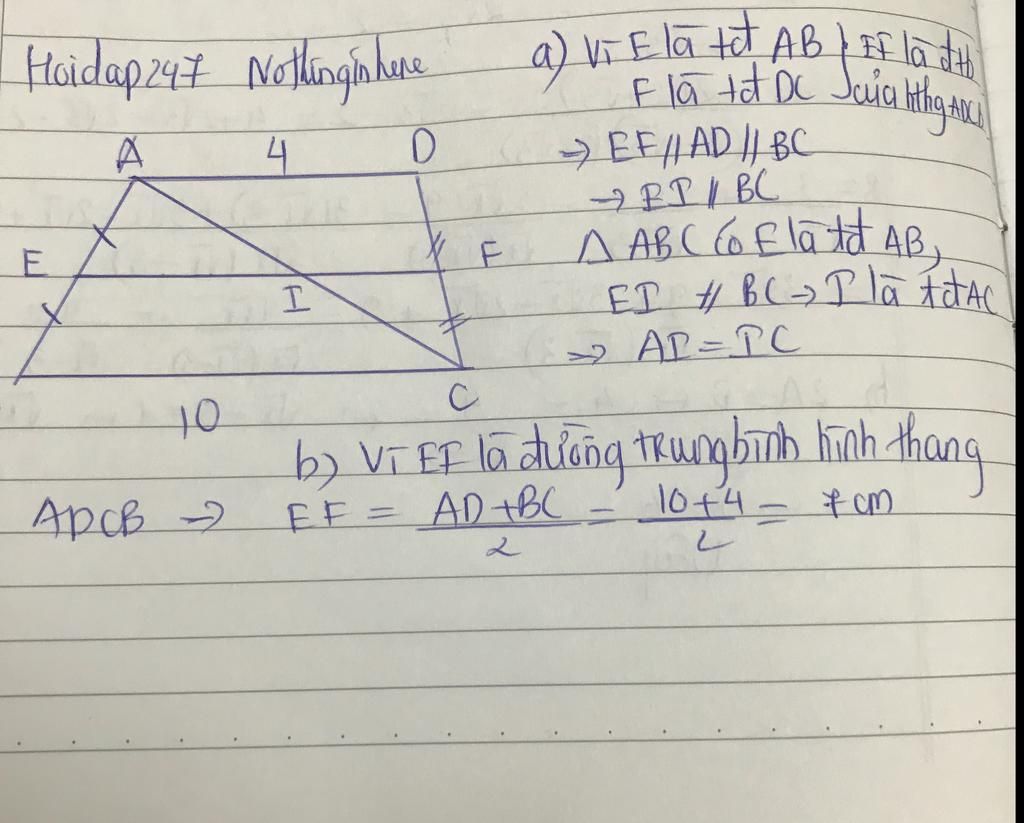 Hoidap247 Nothinginhere
a) Vì E là tđ AB } EF là đtb
F là tđ DC } của hthg ADCB
→ EF // AD // BC
→ EI // BC
Δ ABC có E là tđ AB,
EI // BC → I là tđ AC
→ AI = IC
A 4 D
E F
I
C
10
b) Vì EF là đường trung bình hình thang
ADCB → EF = AD+BC/2 = 10+4/2 = 7 cm